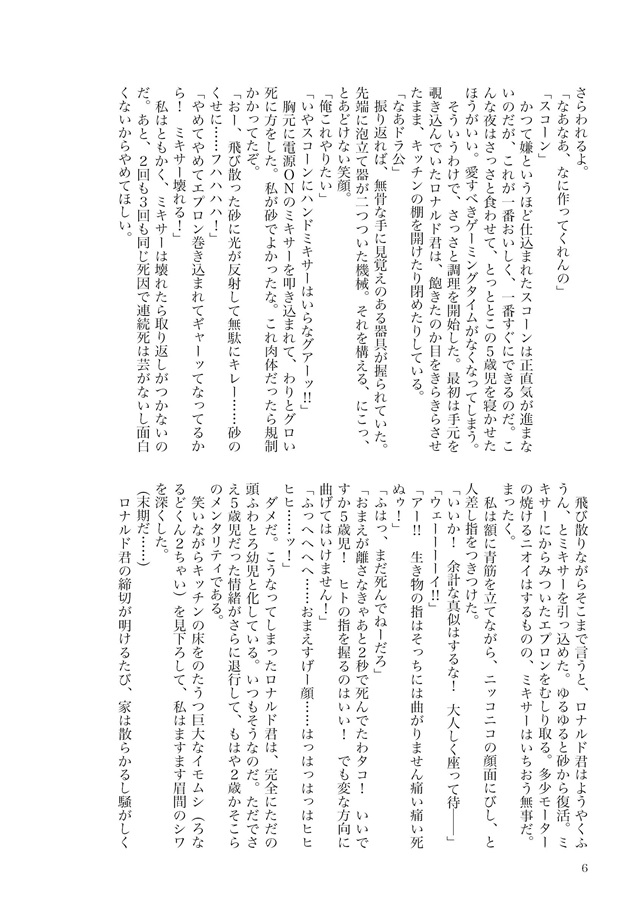 さらわれるよ。
「なあなあ、なに作ってくれんの」
「スコーン」
　かつて嫌というほど仕込まれたスコーンは正直気が進まな
いのだが、これが一番おいしく、一番すぐにできるのだ。こ
んな夜はさっさと食わせて、とっととこの５歳児を寝かせた
ほうがいい。愛すべきゲーミングタイムがなくなってしまう。
　そういうわけで、さっさと調理を開始した。最初は手元を
覗き込んでいたロナルド君は、飽きたのか目をきらきらさせ
たまま、キッチンの棚を開けたり閉めたりしている。
「なあドラ公」
　振り返れば、無骨な手に見覚えのある器具が握られていた。
先端に泡立て器が二つついた機械。それを構える、にこっ、
とあどけない笑顔。
「俺これやりたい」
「いやスコーンにハンドミキサーはいらなグアーッ!!」
　胸元に電源ＯＮのミキサーを叩き込まれて、わりとグロい
死に方をした。私が砂でよかったな。これ肉体だったら規制
かかってたぞ。
「おー、飛び散った砂に光が反射して無駄にキレー……砂の
くせに……フハハハハ！」
「やめてやめてエプロン巻き込まれてギャーッてなってるか
ら！　ミキサー壊れる！」
　私はともかく、ミキサーは壊れたら取り返しがつかないの
だ。あと、２回も３回も同じ死因で連続死は芸がないし面白
くないからやめてほしい。
　飛び散りながらそこまで言うと、ロナルド君はようやくふ
うん、とミキサーを引っ込めた。ゆるゆると砂から復活。ミ
キサーにからみついたエプロンをむしり取る。多少モーター
の焼けるニオイはするものの、ミキサーはいちおう無事だ。
まったく。
　私は額に青筋を立てながら、ニッコニコの顔面にびし、と
人差し指をつきつけた。
「いいか！　余計な真似はするな！　大人しく座って待――」
「ウェーーーーイ!!」
「アー!!　生き物の指はそっちには曲がりません痛い痛い死
ぬぅ！」
「ふはっ、まだ死んでねーだろ」
「おまえが離さなきゃあと２秒で死んでたわタコ！　いいで
すか５歳児！　ヒトの指を握るのはいい！　でも変な方向に
曲げてはいけません！」
「ふっへへへへ……おまえすげー顔……はっはっはっはヒヒ
ヒヒ……ッ！」
　ダメだ。こうなってしまったロナルド君は、完全にただの
頭ふわとろ幼児と化している。いつもそうなのだ。ただでさ
え５歳児だった情緒がさらに退行して、もはや２歳かそこら
のメンタリティである。
　笑いながらキッチンの床をのたうつ巨大なイモムシ（ろな
るどくん２ちゃい）を見下ろして、私はますます眉間のシワ
を深くした。
（末期だ……）
　ロナルド君の締切が明けるたび、家は散らかるし騒がしく
6